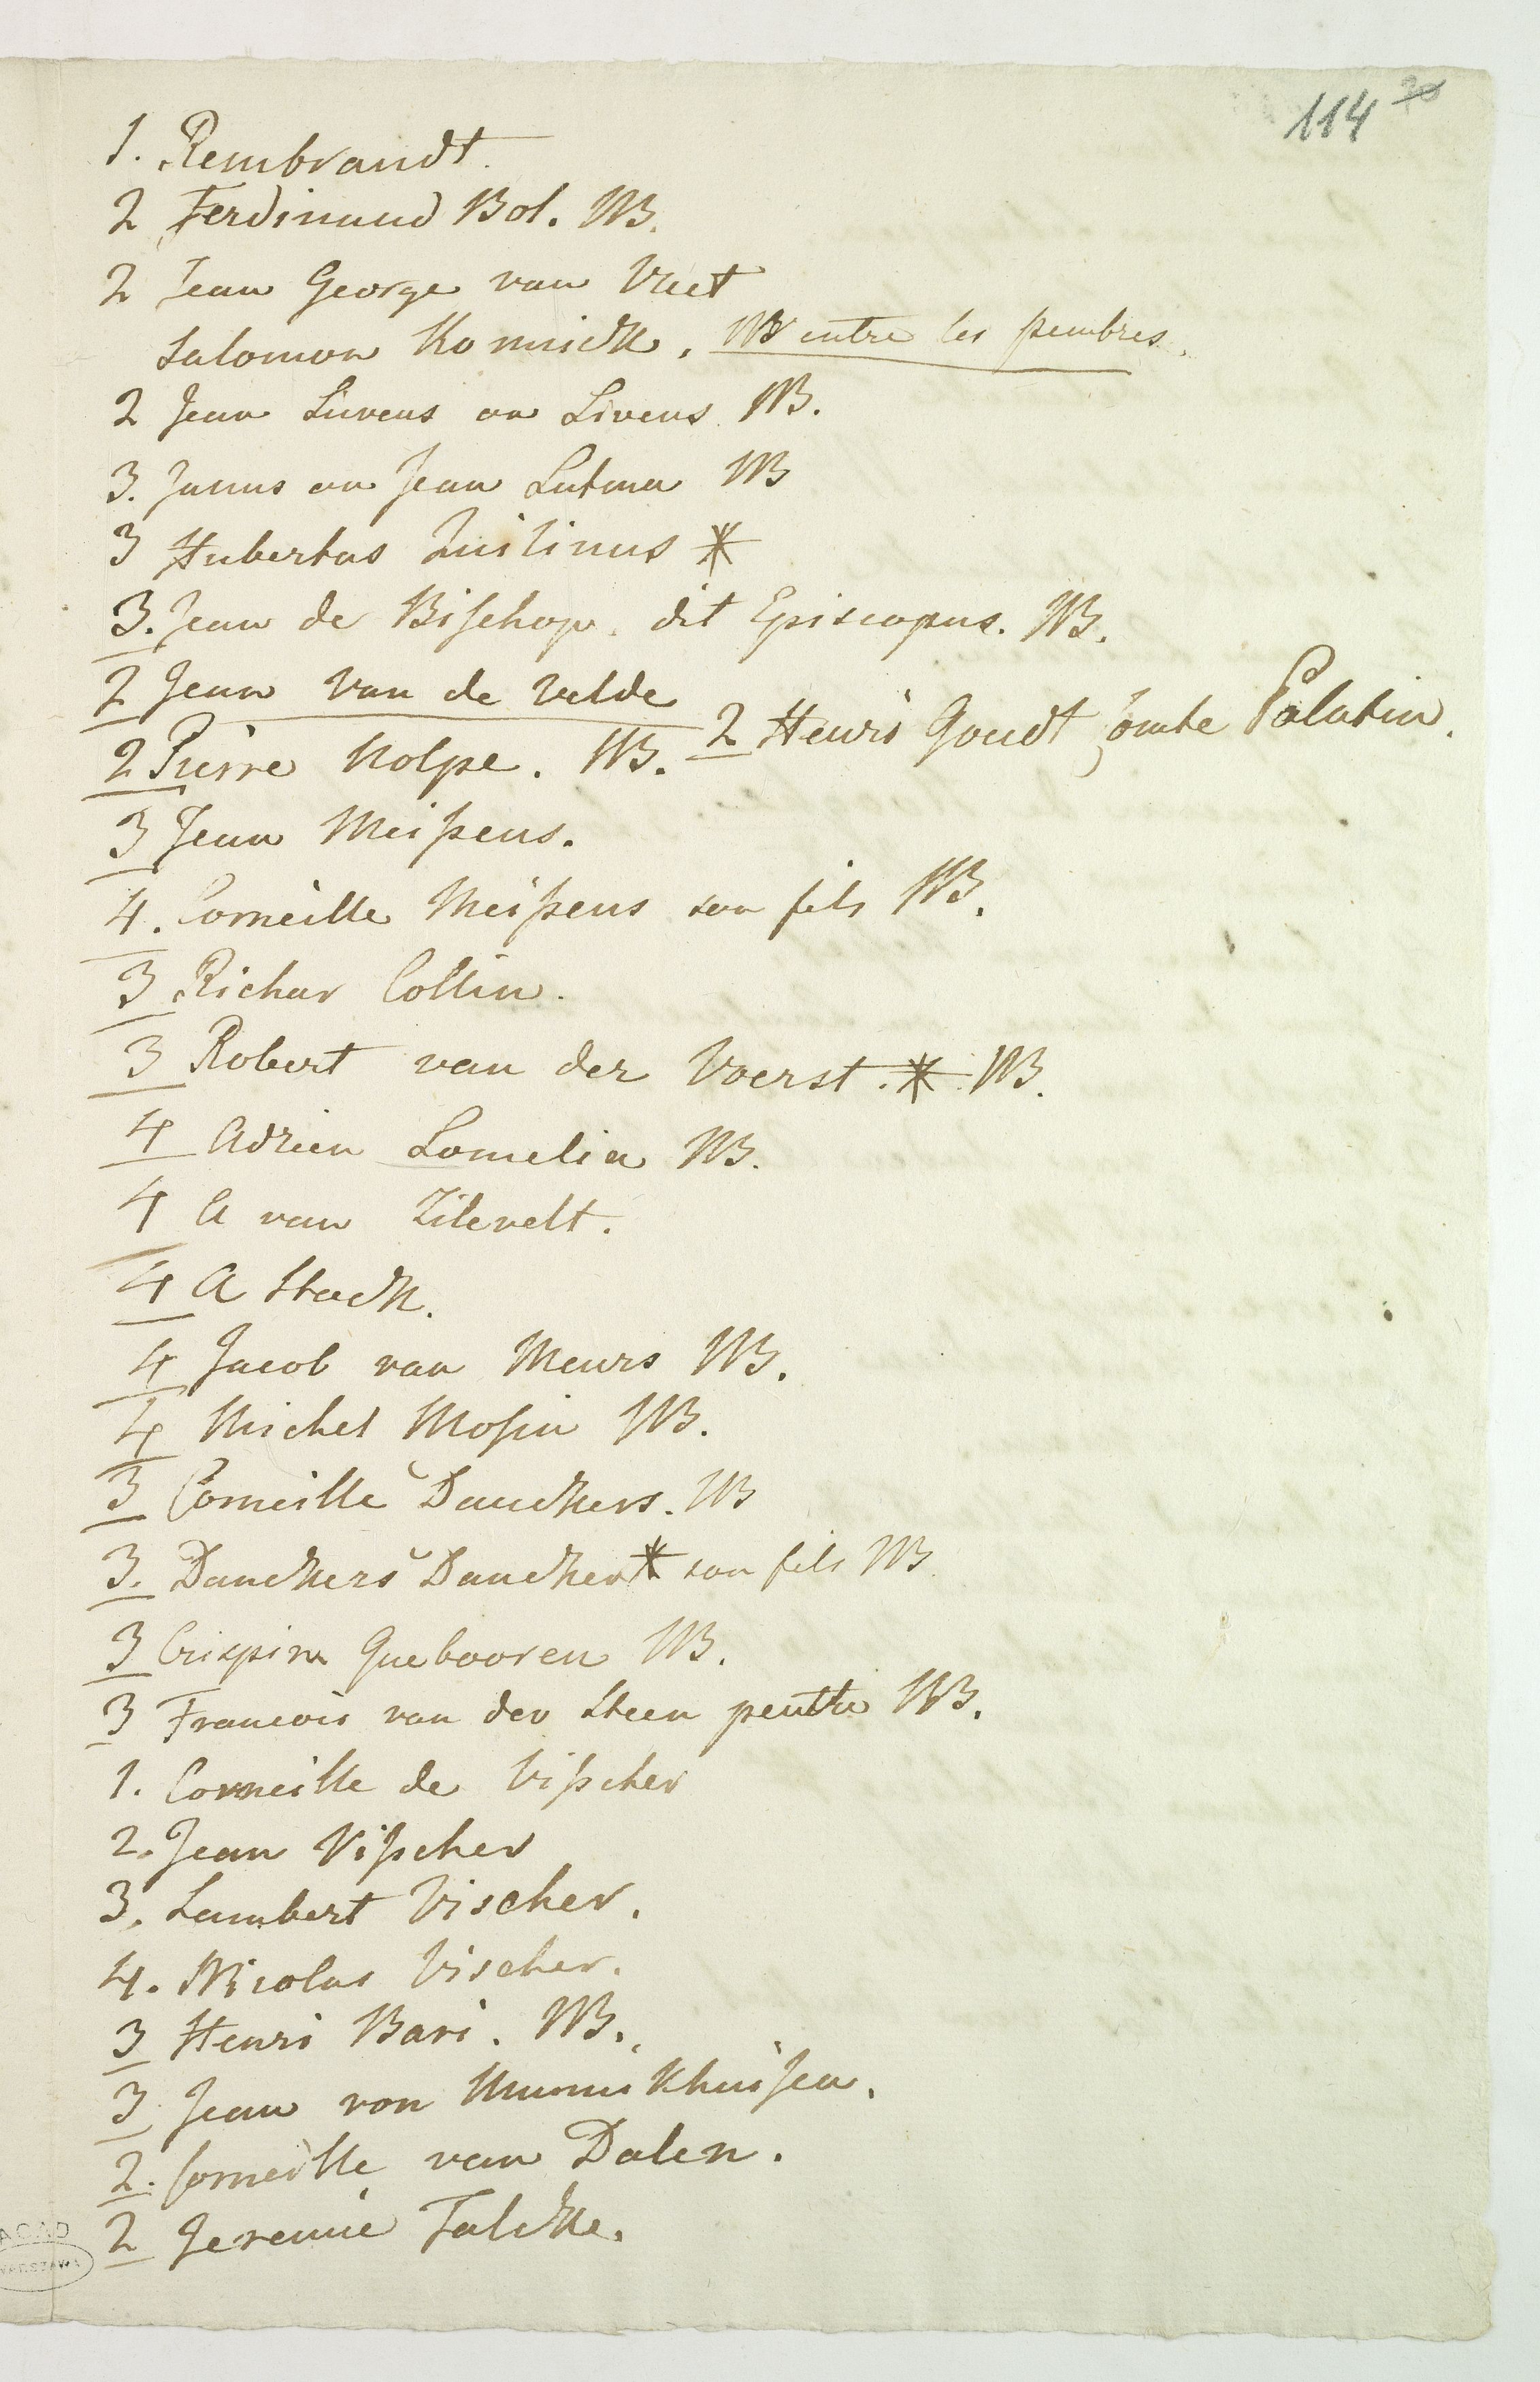 114
1. Rembrandt.
2 Ferdinand Bol. WB.
2 Jean George van Vliet
Salomon Konnick. WB entre les peintres.
2 Jean Lievens ou Livens WB.
3. Janus ou Jean Lutma WB
3 Hubertus Quilinus *
3. Jean de Bischop. dit Episcopus. WB.
2 Jean van de Velde
2 Pierre Nolpe. WB. 2 Henri Goudt Comte Palatin.
3 Jean Meissens.
4. Corneille Meissens son fils WB.
3 Richar Collin.
3 Robert van der Voerst. * WB.
4 Adrien Lomelin WB.
4 A van Zilevelt.
4 A Stock.
4 Jacob van Meurs WB.
4 Michel Mosin WB.
3 Corneille Danckers. WB
3. Danckers Dancker* son fils WB
3 Crispin Quebooren WB.
3 Francois van der Steen peintre WB.
1. Corneille de Visscher
2. Jean Visscher
3. Lambert Vischer.
4. Nicolas Vischer.
3 Henri Bari. WB.
3 Jean von Munnikhuisen.
2. Corneille van Dalen.
2 Jeremie Falcke.